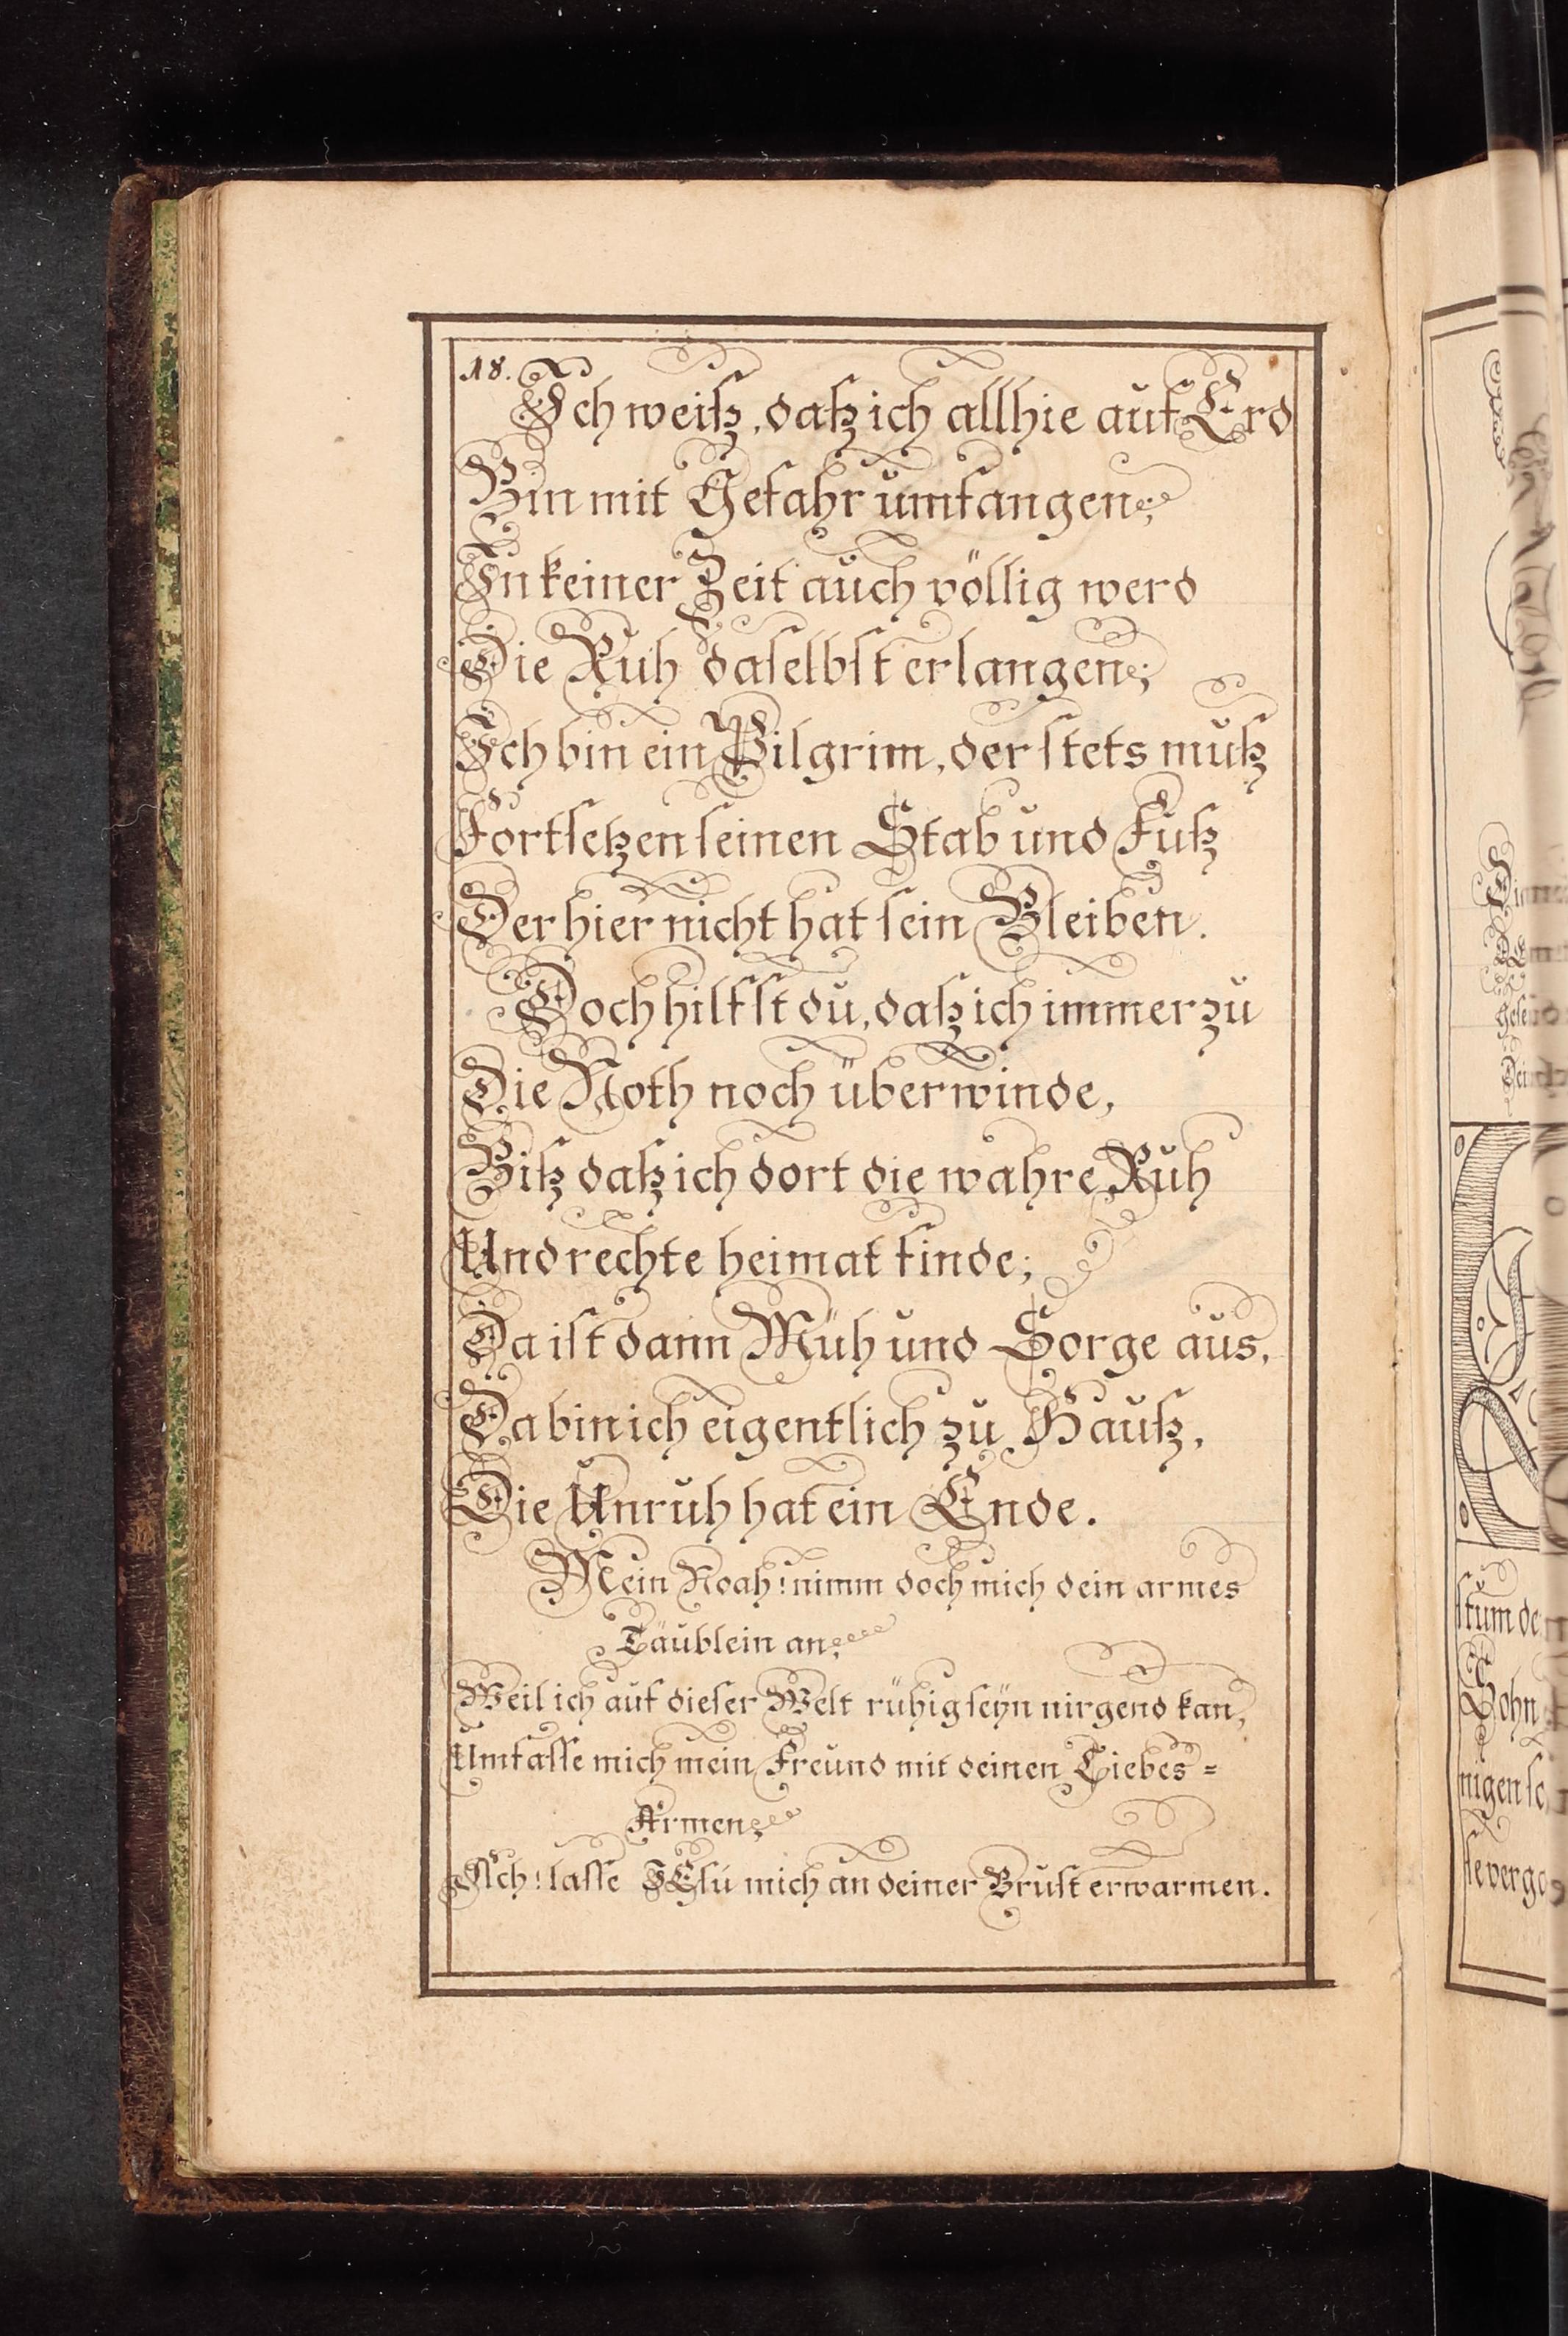 18.
Ich weiß, daß ich allhie auf Erd
Bin mit Gefahr umfangen;
In keiner Zeit auch völlig werd
Die Ruh daselbst erlangen;
Ich bin ein Pilgrim, der stets muß
Fortsetzen seinen Stab und Fuß
Der hier nicht hat sein Bleiben.
Doch hilfst du, daß ich immerzu
Die Noth noch überwinde,
Biß daß ich dort die wahre Ruh
Und rechte heimat finde;
Da ist dann Müh und Sorge aus,
Da bin ich eigentlich zu Hauß,
Die Unruh hat ein Ende.
Mein Noah! nimm doch mich dein armes
Täublein an;
Weil ich auf dieser Welt rühig seÿn nirgend kan,
Umfasse mich mein Freund mit deinen Liebes=
Armen;
Ach! lasse JEsu mich an deiner Brust erwarmen.
stum de
Sohn
nigen se
se verge